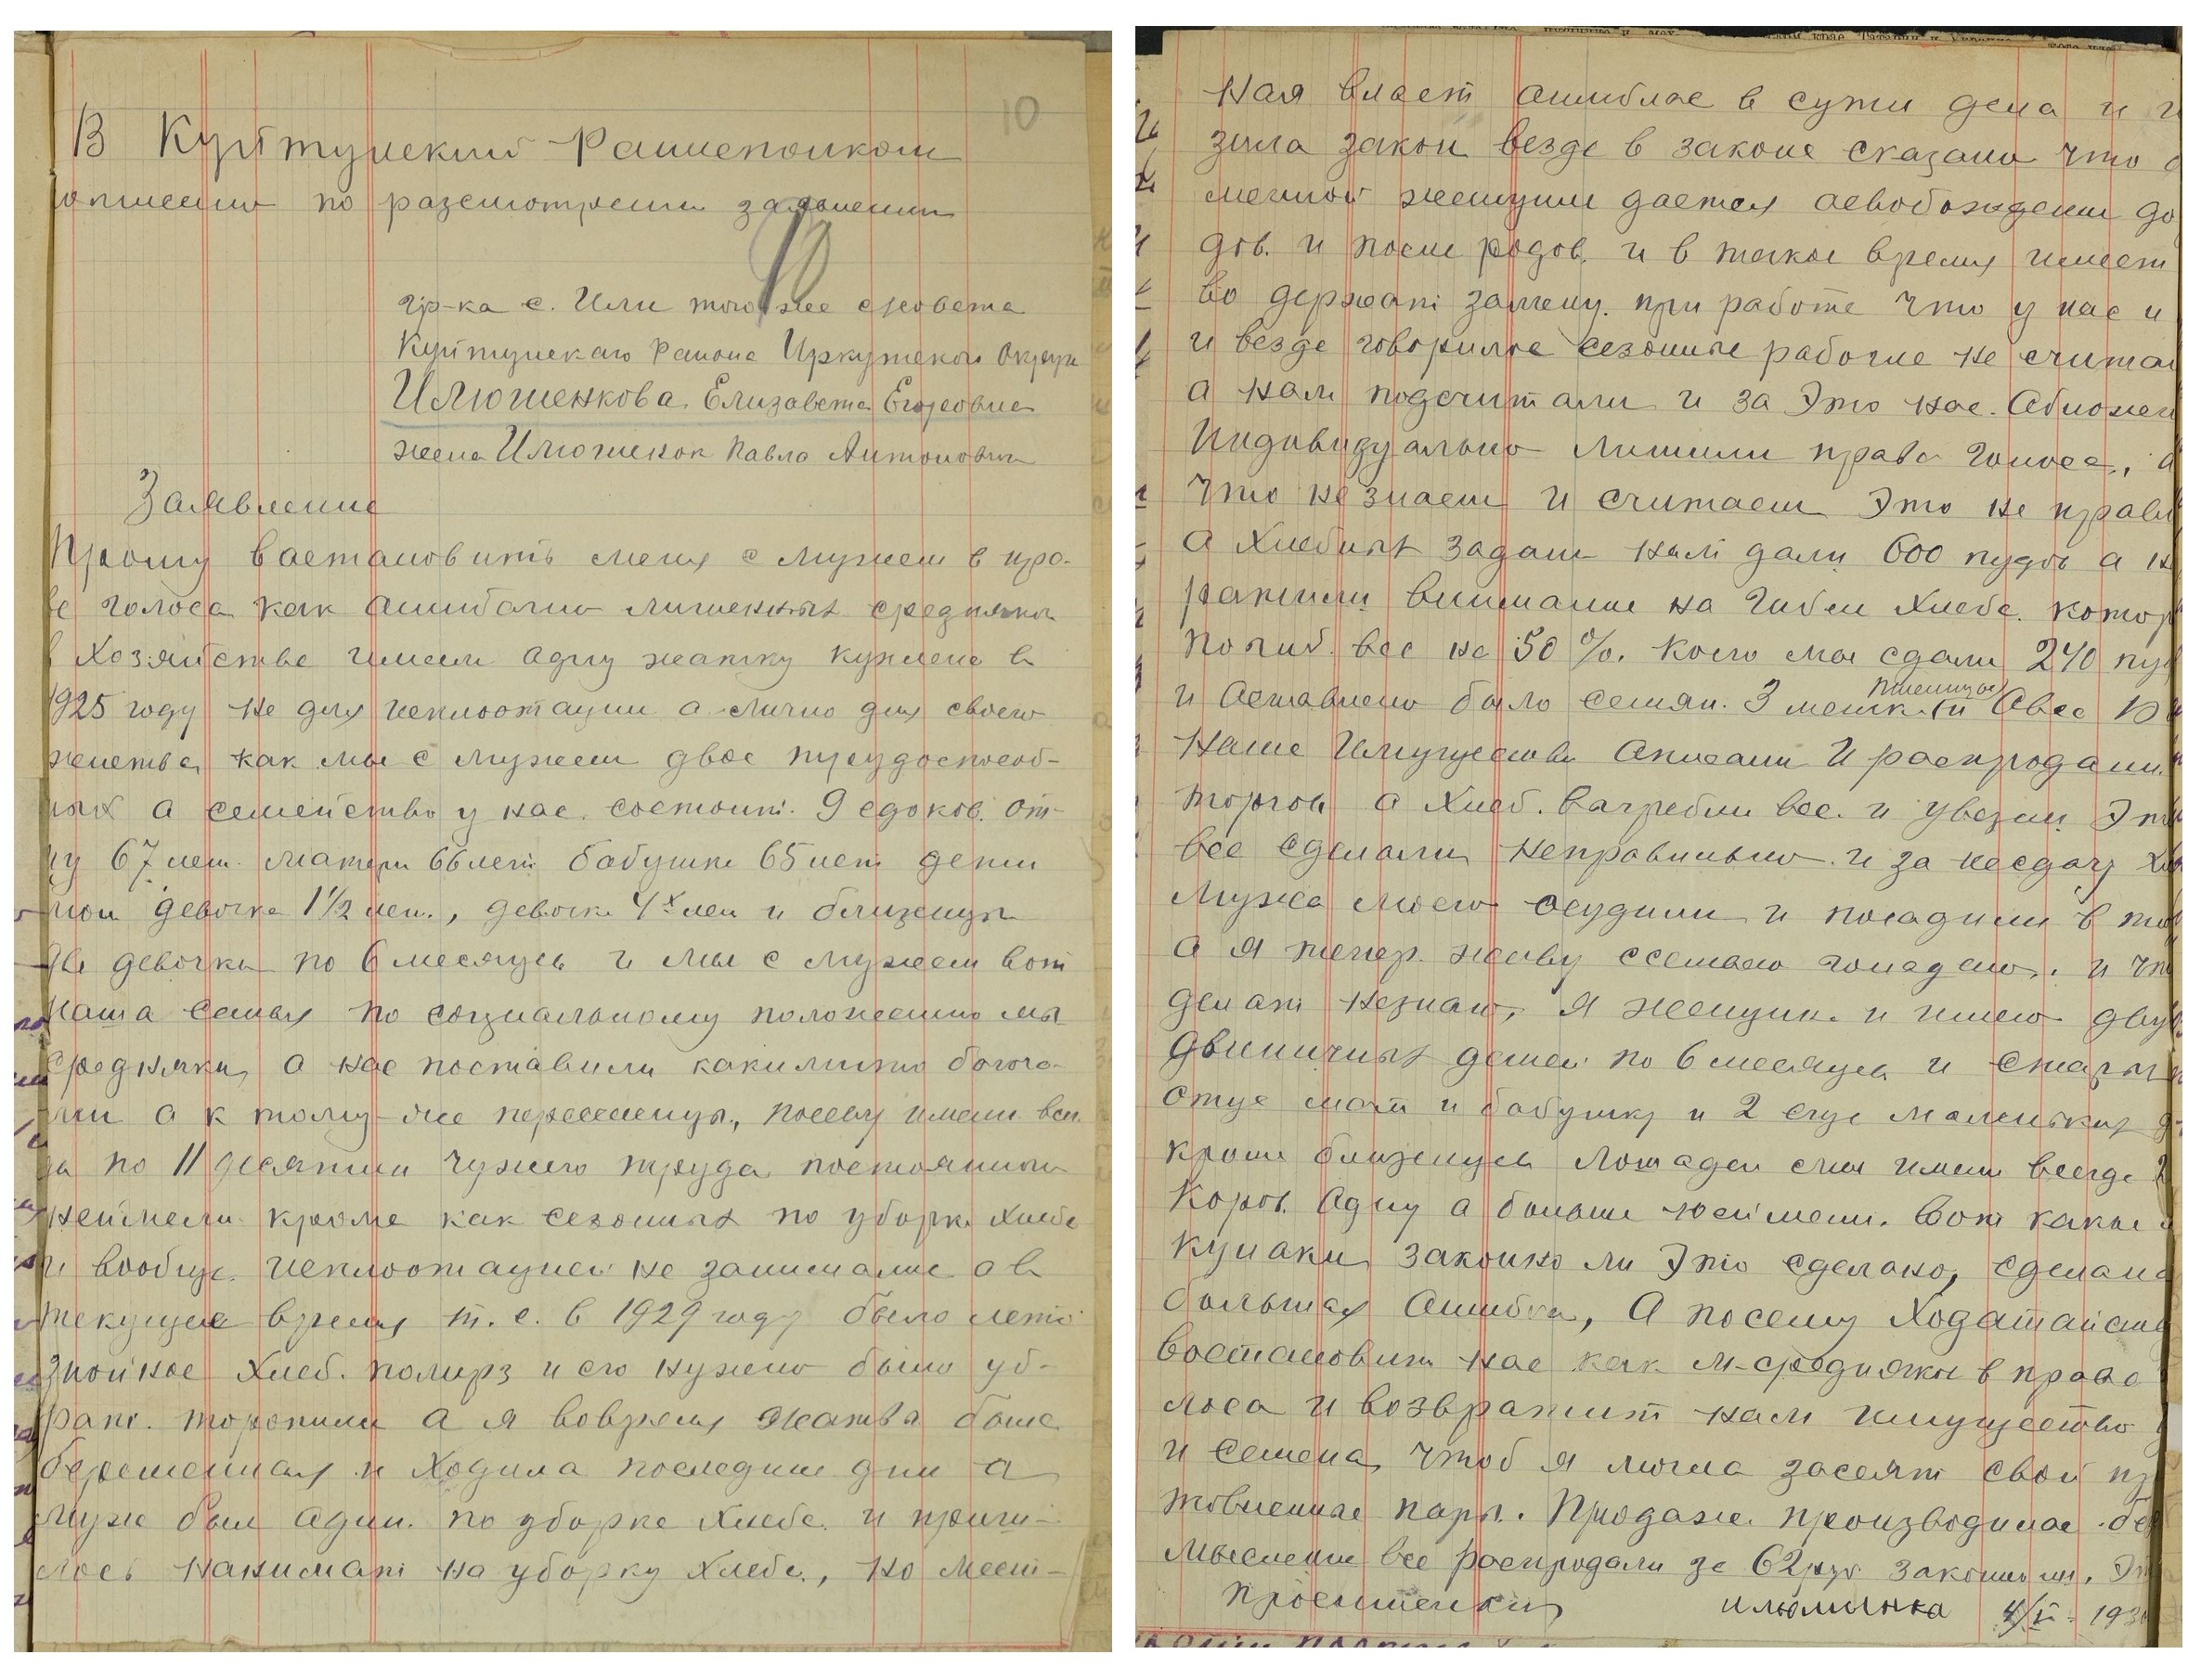 10
В Куйтунский Раиисполком
по рассмотрении заявлении
10
гр-ка с. Или того же с/совета
Куйтунскаго Раиона Иркутскои Округи
Илюшенкова Елизавета Егоровна
жена Илюшенок Павла Антонович
Заявление
Прошу Састановить меня с мужем в пра-
ве голоса как ашибачно лишенных средняки
в Хозяйстве имели адну жатку куплена в
1925 году не для исплоотации а лично для своего
как мы с мужем двое
ных а семейство у нас состоит 9 едоков. От-
цу 67 лет матери 66 лет бабушки 65 лет дети
мои девочка 1½ лет., девочка 4х лет и близнецы
две девочки по 6 месяцев и мы с мужем вот
наша семья по социальному положению мы
средняки, а нас поставили какимито богача-
ми а к тому-же посеву имели всег-
да по 11 десятин чужего труда постоянного
неимели кроме как сезонных по уборке Хлеба
и вообще исплоотацией не занимались а в
текущее время т. е. в 1929 году было лето
знойное Хлеб. и его нужно было уб-
рать. торопили а я вовремя жатвы была
беременная и Ходила последнии дни а
муж был адин. по уборке Хлеба. и приш-
лось нанимать на уборку Хлеба., но мест-
ная власть ашиблас в сути дела и и
зила закон везде в законе сказано что б
менной женщине дается асвобождении до
дов. и после родов. и в такое время имеет
во держать замену. при работе что у нас и
и везде говорилос сезонные рабочие не считаю
а нам подсчитали и за Это нас. Абложи
Индивидуально лишили права голоса.,
что не знаем и считаем Это не прави
а Хлебных задани нам дали 600 пудов а н
ратили внимание на гибел Хлеба. котор
погиб. вес на 50%. коего мы сдали 240 пу
и Аставлено было семян. 3 мешка пшеницы и Авса 10
наше Имущество Аписали И распродали.
торгов а Хлеб. Вагребли вес. и увезли Это
все сделали неправильно. и за несдачу Хл
мужа моего осудили и посадили в тю
а я тепер. живу ссемьею голадаю,. и что
делат незнаю, Я женщина и имею двух
двиничных детей по 6 месяцев и стары
отца мать и бабушку и 2 еще маленьких д
кроме близнецев Лошадей мы имели всегда 2
Коров. Адну а больше неимели. вот какие
кулаки законно ли Это сделано, сделана
большая Ашибка, А посему Ходатайств
востановить нас как м-средняки в праве
лоса и возвратит нам имущество
и семена, чтоб я могла засеят свои
товленные пары. Продажа производилас бе
мысленна все распродали за 62 руб законно ли, Эт
Просителка илюшинка 4/V - 193